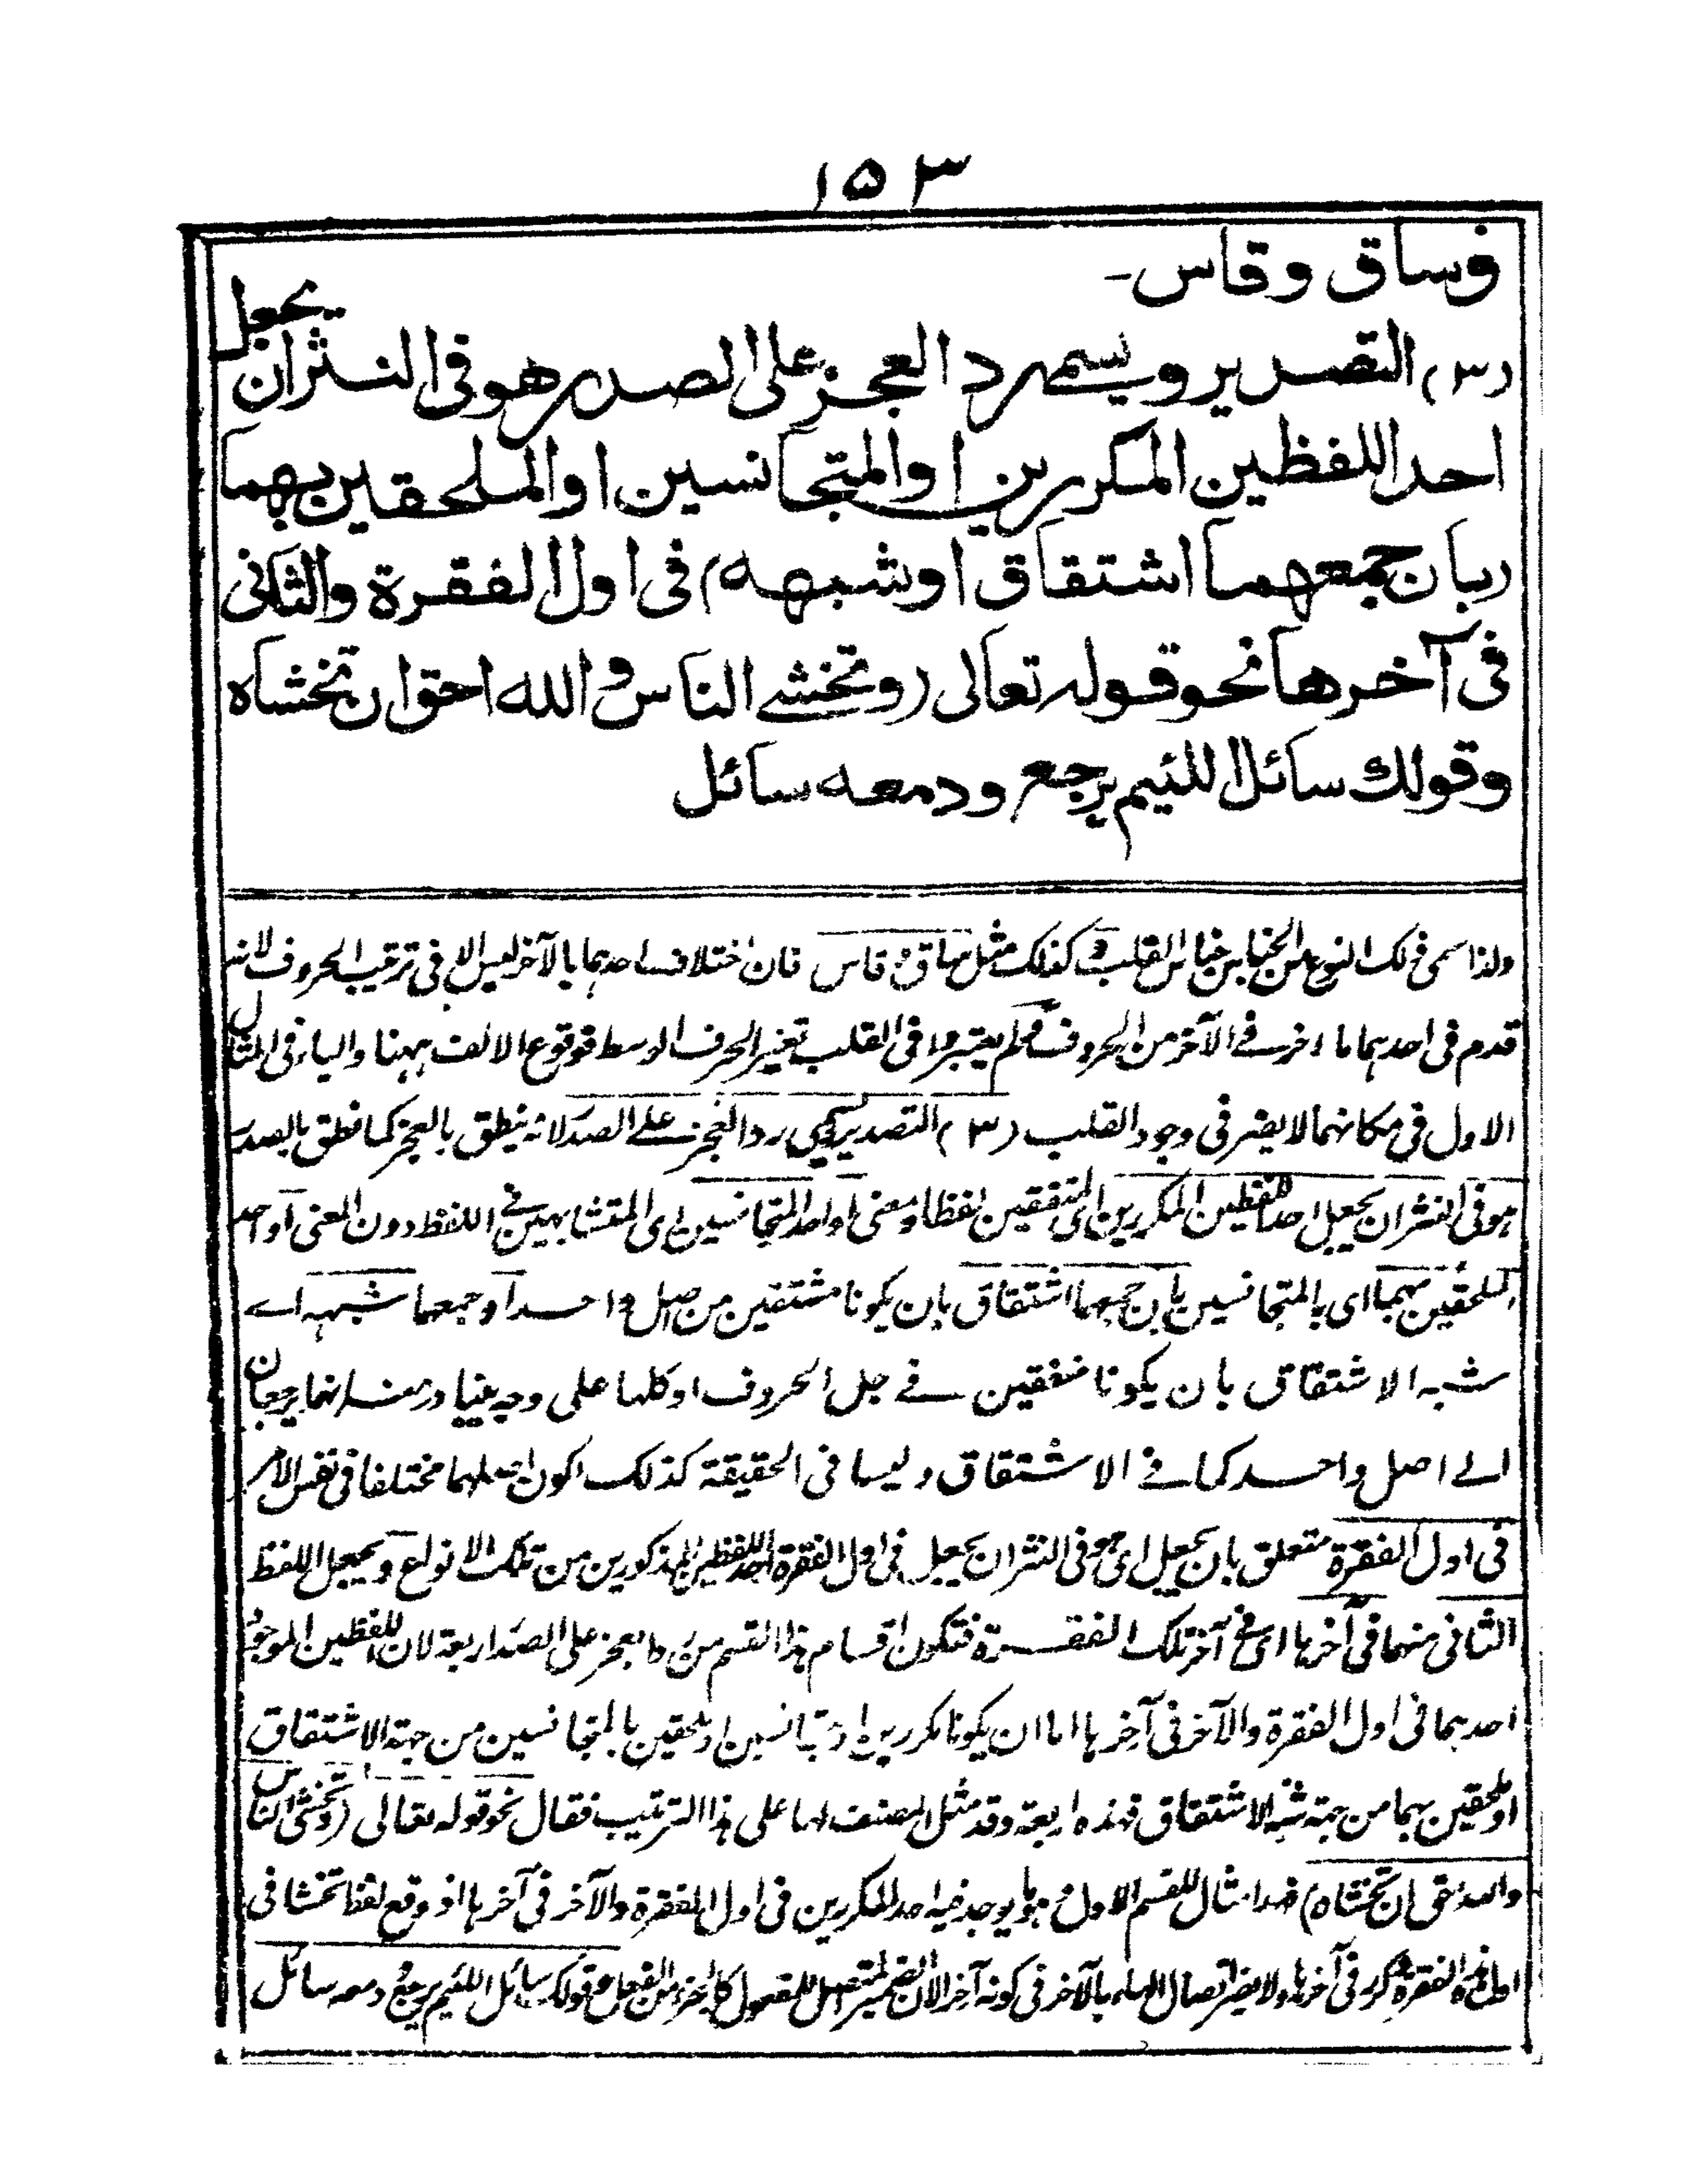 ١٥٣
وساق وقاس۔
(٣) التصدير ويسمى رد العجز على الصدر هو فى النثران يجعل
احد اللفظين المكررين او المتجانسين او الملحقين بهما
(بان جمعهما اشتقاق او شبهه) فى اول الفقرة والثانى
فى آخرها نحو قوله تعالى (وتخشى الناس والله احق ان تخشاه
وقولك سائل اللئيم يرجع ودمعه سائل
ولذا سمى ذلك النوع من الجناس جناس القلب وذلك مثل ساق وقاس فان اختلاف احدهما بالآخر ليس الا فى ترتيب الحروف لانه
قدم فى احدهما ما اخر فى الآخر من الحروف ولم يعتبروا فى القلب تغير الحرف الوسط فوقوع الالف ههنا والياء فى المثال
الاول فى مكانهما لا يضر فى وجود القلب (٣) التصدير ويسمى رد العجز على الصدر لانه ينطق بالعجز كما نطق بالصدر
هو فى النثر ان يجعل احد اللفظين المكررين اى المتفقين لفظا ومعنى او احد المتجانسين اى المتشابهين فى اللفظ دون المعنى او احد
الملحقين بهما اى بالمتجانسين بان جمعهما اشتقاق بان يكونا مشتقين من اصل واحد او جمعهما شبهه اے
شبه الاشتقاق بان يكونا متفقين فى جل الحروف او كلها على وجه يتبادر منه انهما يرجعان
الى اصل واحد كما فى الاشتقاق وليسا فى الحقيقة كذلك لكون اصلهما مختلفا فى نفس الامر
فى اول الفقرة متعلق بان يجعل اى هو فى النثر ان يجعل فى اول الفقرة احد اللفظين المذكورين من تلك الانواع ويجعل اللفظ
الثانى منهما فى آخرها اى فى آخر تلك الفقرة فتكون اقسام هذا القسم من رد العجز على الصدر اربعة لان اللفظين الموجود
احدهما فى اول الفقرة والآخر فى آخرها اما ان يكونا مكررين او متجانسين او ملحقين بالمتجانسين من جهة الاشتقاق
او ملحقين بهما من جهة شبه الاشتقاق فهذه اربعة وقد مثل المصنف لها على هذا الترتيب فقال نحو قوله تعالى (وتخشى الناس
والله احق ان تخشاه) هذا مثال للقسم الاول وهو ما يوجد فيه احد المكررين فى اول الفقرة والآخر فى آخرها اذ وقع لفظ تخشا فى
اول هذه الفقرة وكرر فى آخرها ولا يضر اتصال الهاء بالآخر فى كونه آخرا لان الضمير المتصل للمفعول كالجزء من الفعل وقولك سائل اللئيم يرجع ودمعه سائل